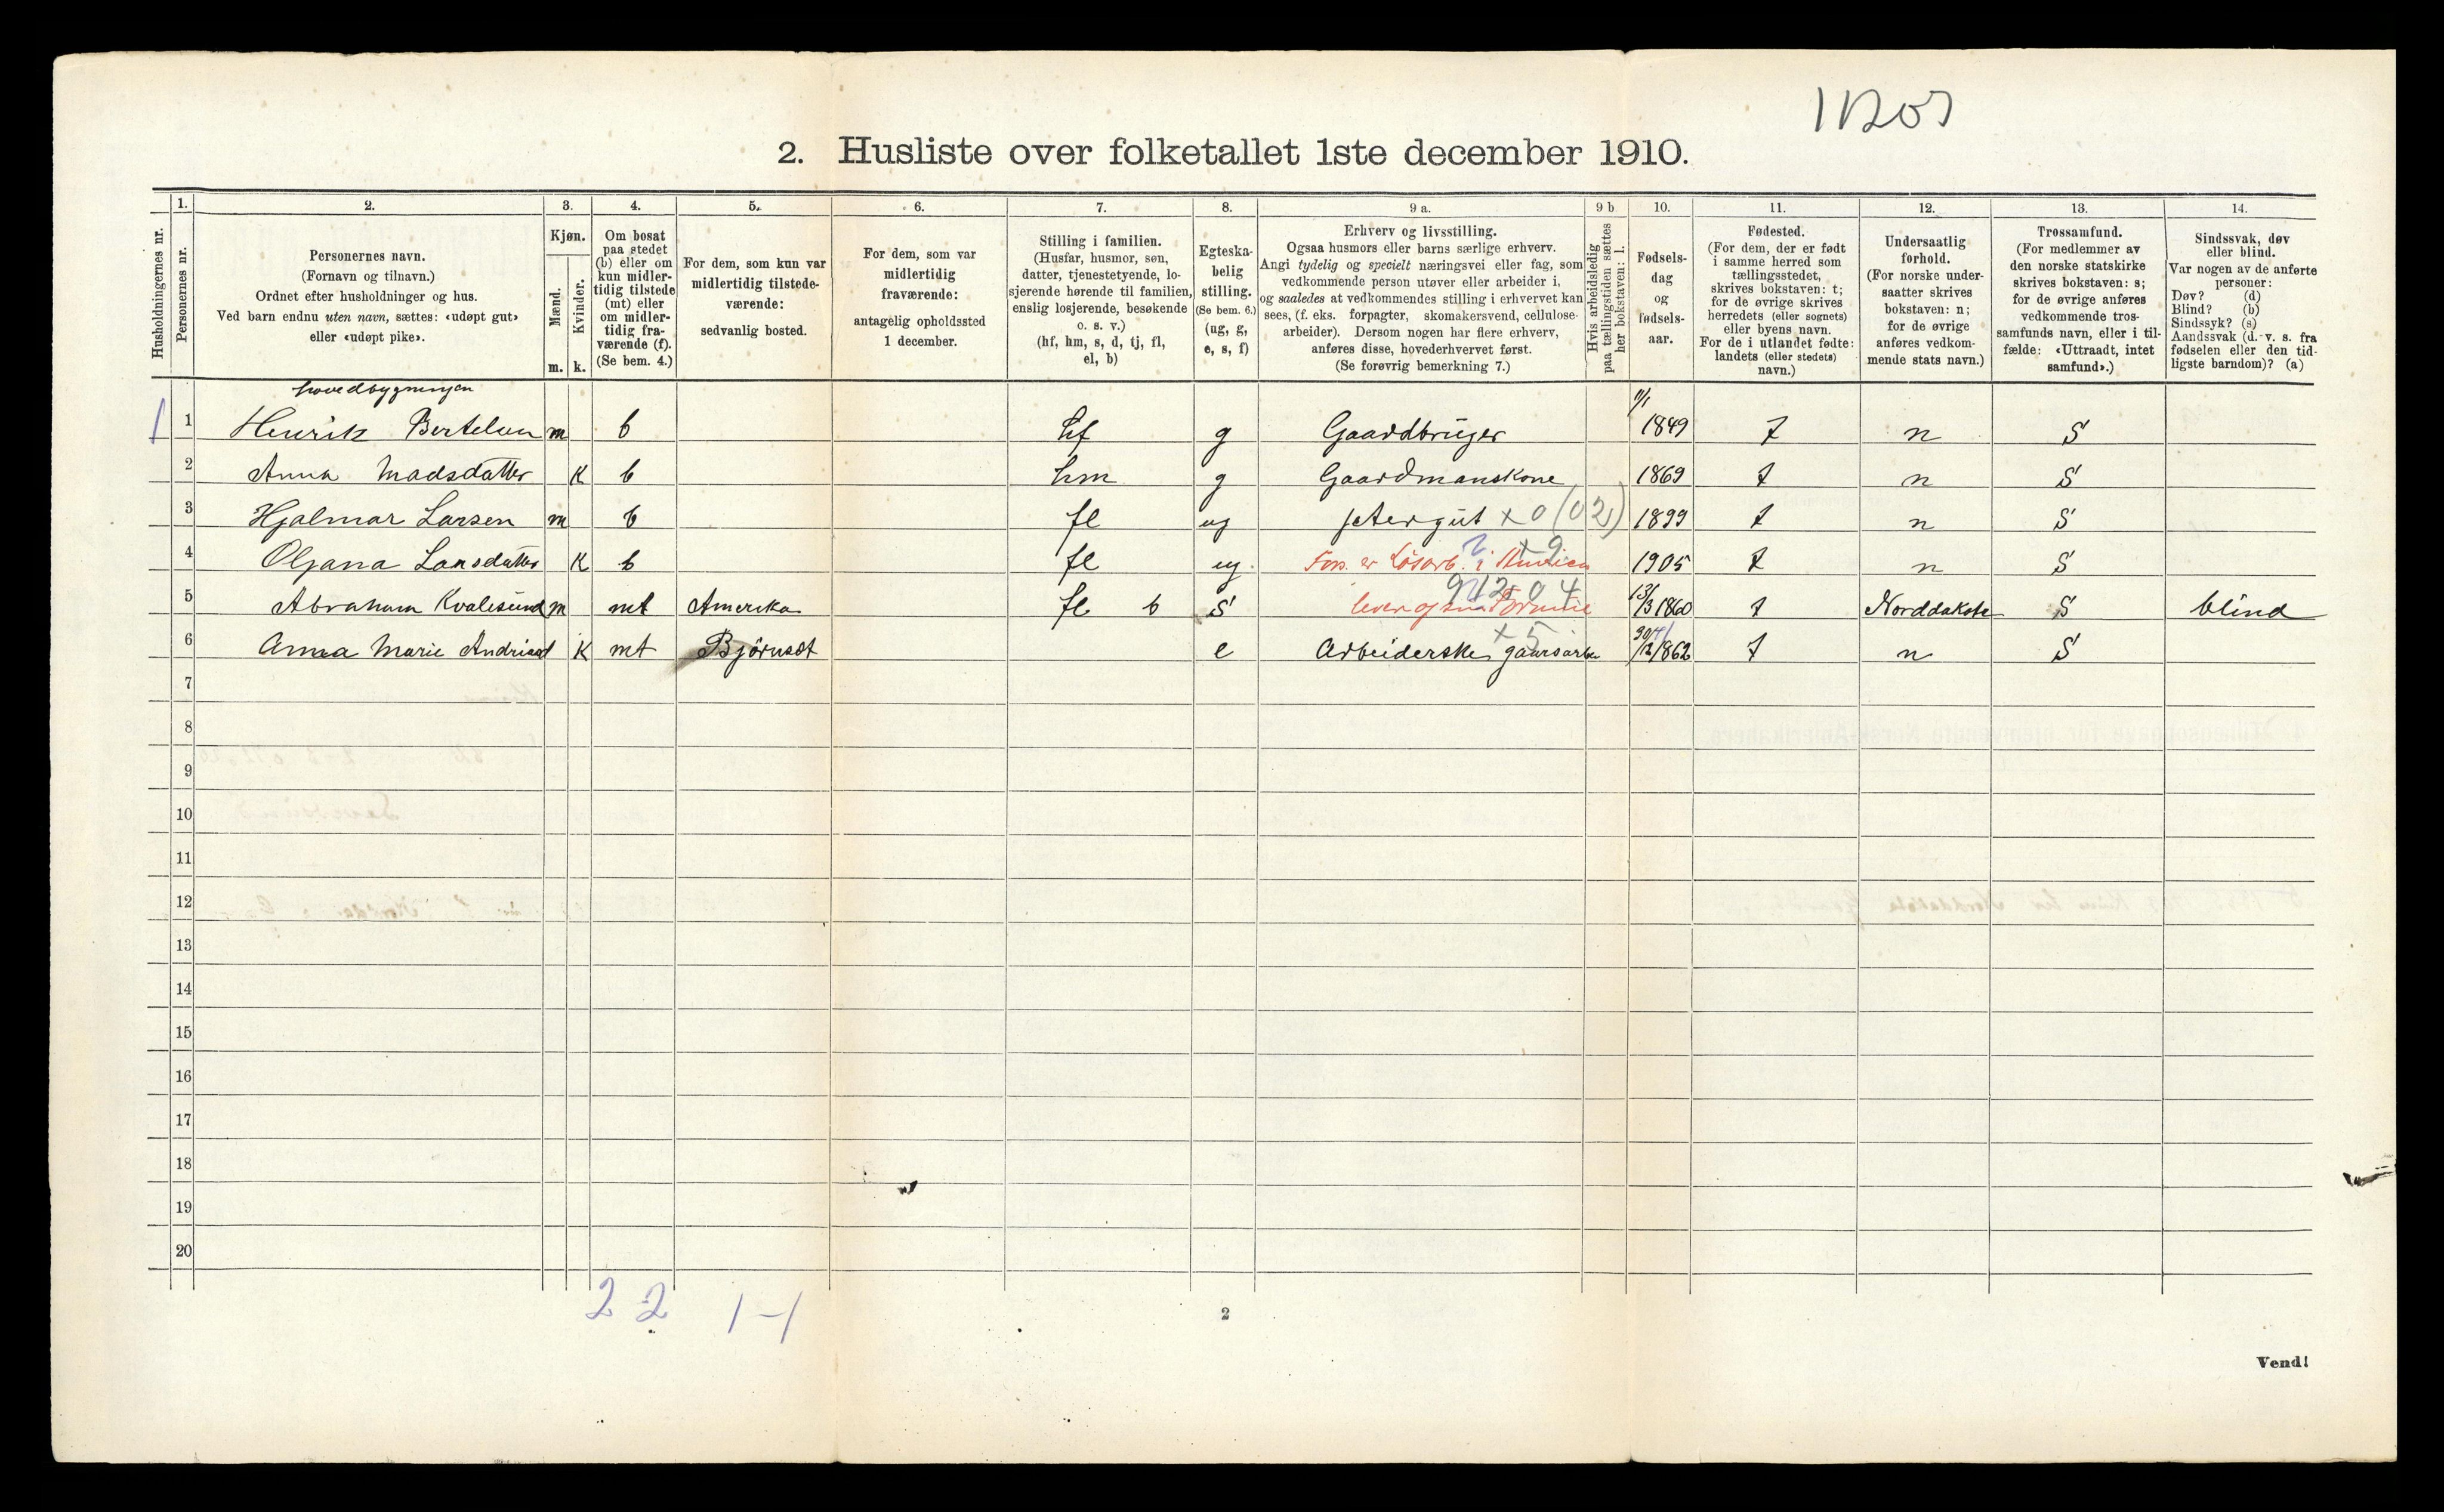 11207
2. Husliste over folketallet 1ste december 1910.
Husholdningernes nr.
1. Personernes nr.
2. Personernes navn. (Fornavn og tilnavn.) Ordnet efter husholdninger og hus. Ved barn endnu uten navn, sættes: «udøpt gut» eller «udøpt pike».
3. Kjøn. Mænd. m. Kvinder. k.
4. Om bosat paa stedet (b) eller om kun midler-tidig tilstede (mt) eller om midler-tidig fra-værende (f). (Se bem. 4.)
5. For dem, som kun var midlertidig tilstede-værende: sedvanlig bosted.
6. For dem, som var midlertidig fraværende: antagelig opholdssted 1 december.
7. Stilling i familien. (Husfar, husmor, søn, datter, tjenestetyende, lo-sjerende hørende til familien, enslig losjerende, besøkende o. s. v.) (hf, hm, s, d, tj, fl, el, b)
8. Egteska-belig stilling. (Se bem. 6.) (ug, g, e, s, f)
9 a. Erhverv og livsstilling. Ogsaa husmors eller barns særlige erhverv. Angi tydelig og specielt næringsvei eller fag, som vedkommende person utøver eller arbeider i, og saaledes at vedkommendes stilling i erhvervet kan sees, (f. eks. forpagter, skomakersvend, cellulose-arbeider). Dersom nogen har flere erhverv, anføres disse, hovederhvervet først. (Se forøvrig bemerkning 7.)
9 b Hvis arbeidsledig paa tællingstiden sættes her bokstaven: l.
10. Fødsels-dag og fødsels-aar.
11. Fødested. (For dem, der er født i samme herred som tællingsstedet, skrives bokstaven: t; for de øvrige skrives herredets (eller sognets) eller byens navn. For de i utlandet fødte: landets (eller stedets) navn.)
12. Undersaatlig forhold. (For norske under-saatter skrives bokstaven: n; for de øvrige anføres vedkom-mende stats navn.)
13. Trossamfund. (For medlemmer av den norske statskirke skrives bokstaven: s; for de øvrige anføres vedkommende tros-samfunds navn, eller i til-fælde: «Uttraadt, intet samfund».)
14. Sindssvak, døv eller blind. Var nogen av de anførte personer: Døv? (d) Blind? (b) Sindssyk? (s) Aandssvak (d. v. s. fra fødselen eller den tid-ligste barndom)? (a)
hovedbygningen
1 1 Henrik Bertelsen m b hf g Gaardbruger 1849 t n S
2 Anna Madsdatter K b hm g Gaardmanskone 1869 t n S
3 Hjalmar Larsen m b fl ug jetergut x 0 (02) 1899 t n S
4 Oljana Larsdatter K b fl ug Fors. er Løsarb. i Amerika 1905 t n S
5 Abraham Kvalesund m mt Amerika fl b S 13/3 1860 t Norddakota S blind
6 Anna Marie Andriasd K mt Björnset e Arbeiderske gaarsarbe 1862 t n S
7
8
9
10
11
12
13
14
15
16
17
18
19
20
2 2 1 - 1
2
Vend!